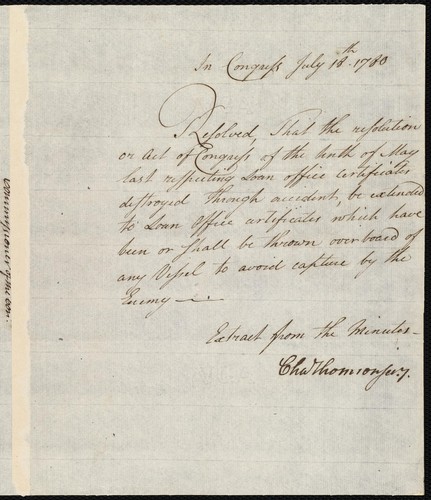 In Congress July 18th. 1780
Resolved, That the resolution
or Act of Congress of the tenth of May
last respecting Loan office Certificates
destroyed through accident, be extended
to Loan Office Certificates which have
been or shall be thrown overboard of
any Vessel to avoid capture by the
Enemy —
Extract from the Minutes —
Chas Thomson Secy.